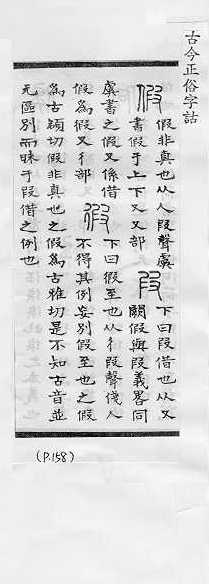 古今正俗字詁
假
假非真也从人叚聲虞
書假于上下又又部
叚
下曰叚借也从又
闕假與叚義畧同
虞書之假又係借
假為徦又彳部
徦
下曰徦至也从彳叚聲後人
不得其例妄別徦至也之假
為古頟切假非真也之假為古雅切是不知古音並
无區別而昧于叚借之例也
(P.158)